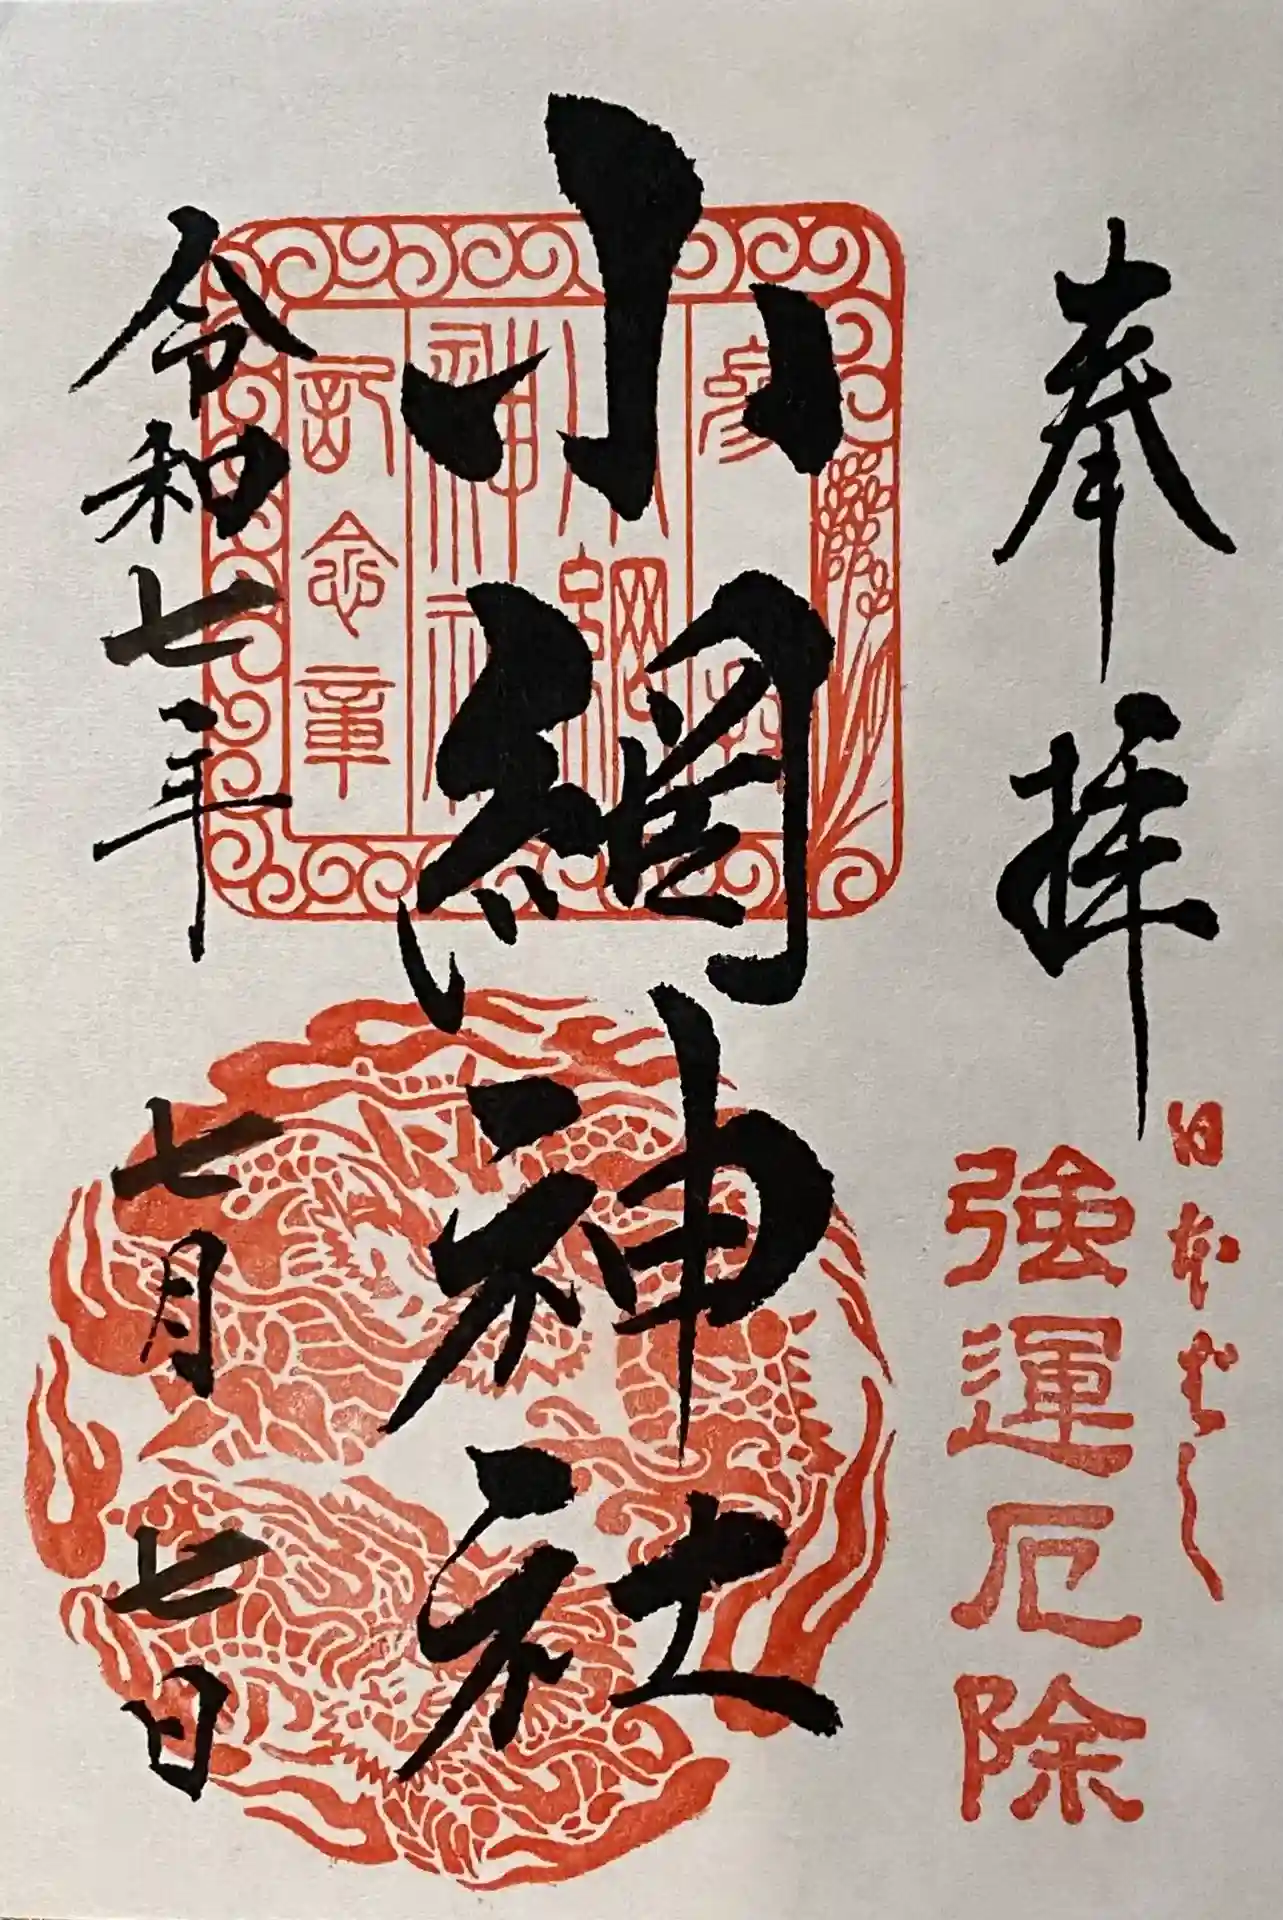 奉拝
日本ばし
強運厄除
小網神社
参拝
小網
神社
記念章
令和七年七月七日